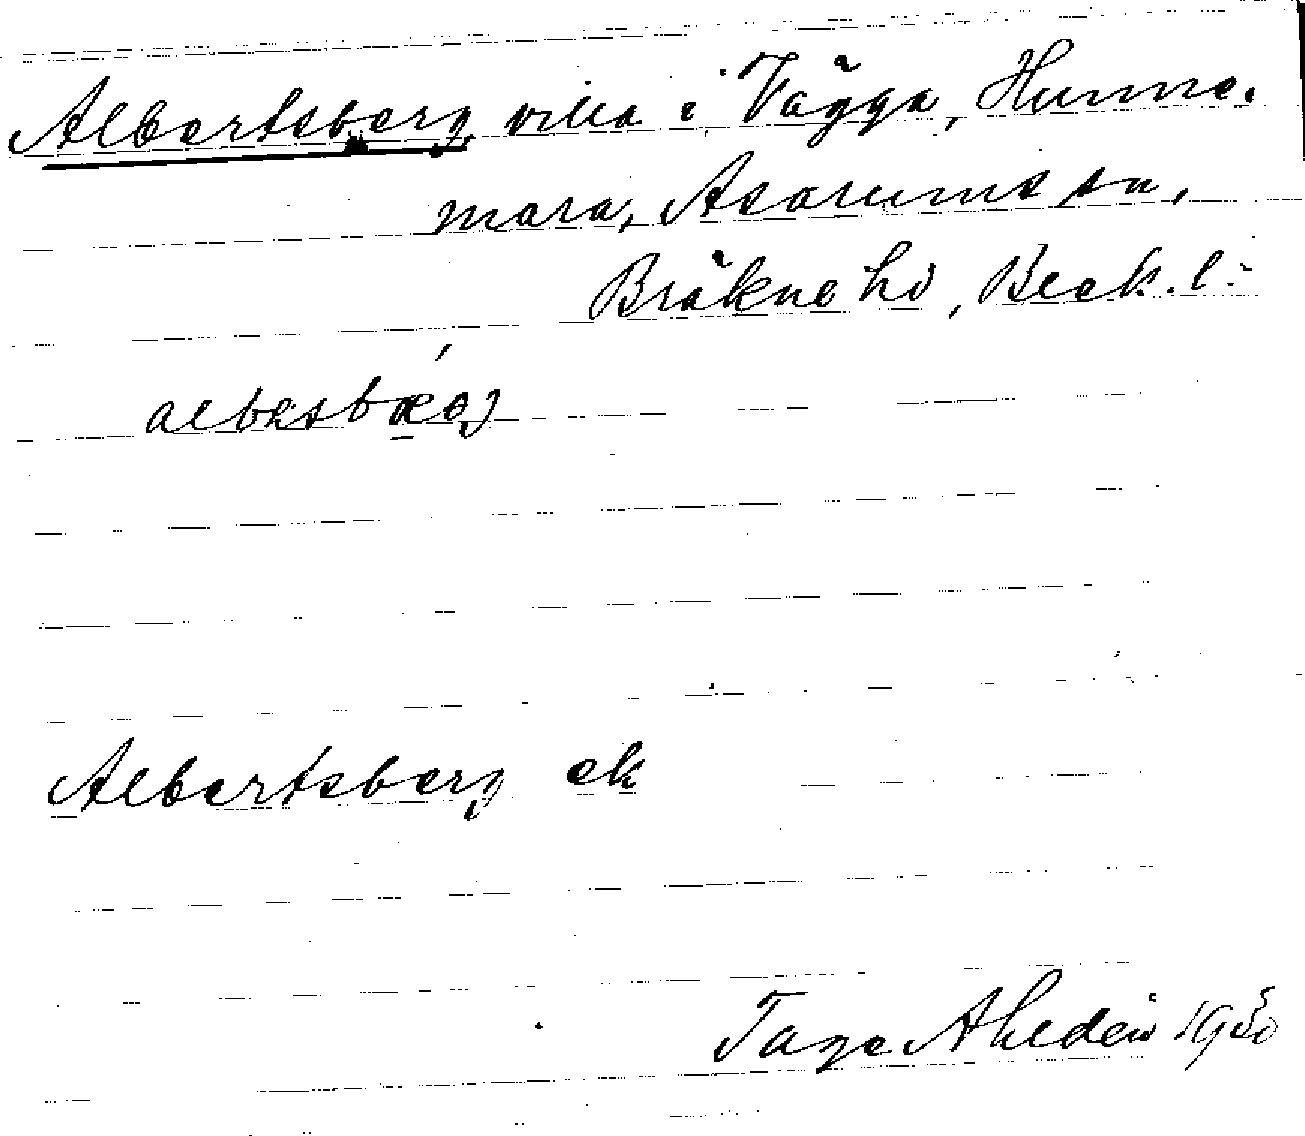 Albertsberg villa i Vägga, Hunne-
mara, Asarums sn,
Bräkne hd, Blek. l:
Albertsberg ek
Tage Ahldén 1930